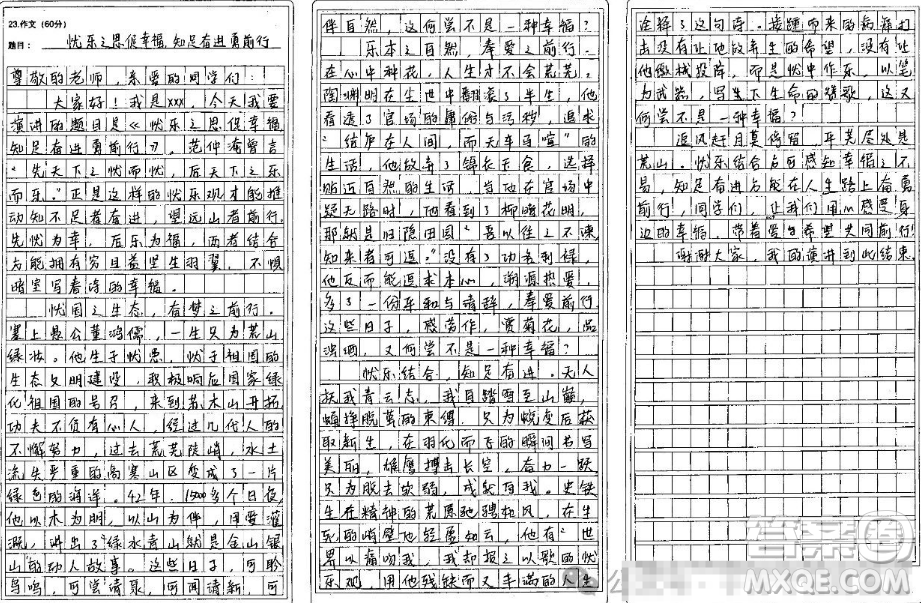 23.作文（60分）
题目：忧乐之思促幸福，知足奋进勇前行
尊敬的老师，亲爱的同学们：
大家好！我是xxx，今天我要
演讲的题目是《忧乐之思促幸福，
知足奋进勇前行》。范仲淹曾言
“先天下之忧而忧，后天下之乐
而乐。”正是这样的忧乐观才能推
动知不足者奋进，望远山者前行。
先忧为幸，后乐为福，两者结合
方能拥有穷且益坚生羽翼，不惧
暗里写着诗的幸福。
忧国之生态，奋梦之前行。
塞上愚公董鸿儒，一生只为荒山
绿妆。他生于忧患，忧于祖国的
生态文明建设，积极响应国家绿
化祖国的号召，来到苏木山开拓，
功夫不负有心人，经过几代人的
不懈努力，过去荒芜陡峭，水土
流失严重的高寒山区变成了一片
绿色的海洋。42年，15000多个日夜，
他以木为朋，以山为伴，用爱灌
溉，讲出了“绿水青山就是金山银
山”的动人故事。这些日子，可聆
鸟鸣，可尝清泉，可闻清新，可
伴自然，这何尝不是一种幸福？
乐本之自然，奉爱之前行。
在心中种花，人生才不会荒芜。
陶渊明在尘世中翻滚了半生，他
看透了官场的黑暗与污秽，追求
“结庐在人间，而无车马喧”的
生活，他放弃了锦衣玉食，选择
贴近自然的生活，当他在官场中
疑无路时，他看到了柳暗花明，
那就是归隐田园“悟以往之不谏，
知来者可追。”没有了功名利禄，
他反而能追求本心，溯源热爱，
多了一份乐和与清静，奉爱前行。
这些日子，般劳作，赏菊花，品
浊酒，又何尝不是一种幸福？
忧乐结合，知足奋进。无人
扶我青云志，我自踏雪至山巅，
蛹挣脱茧的束缚，只为蜕变后获
取新生，在羽化而飞的瞬间书写
美丽，雄鹰搏击长空，奋力一跃，
只为脱去软弱，成就自我。史铁
生在精神的荒原驰骋松风，在生
死的峭壁他轻履如云，他有“世
界以痛吻我，我却报之以歌”的忧
乐观，用他残缺而又丰满的人生
诠释了这句诗。接踵而来的病痛打
击没有让他放弃生的希望，没有让
他缴械投降，而是忧中作乐，以笔
为武器，写生下生命的赞歌，这又
何尝不是一种幸福？
追风赶月莫停留，平芜尽处是
春山。忧乐结合方可感知幸福之不
易，知足奋进方能在人生路上奋勇
前行，同学们，让我们用心感受身
边的幸福，带着爱与希望共同前行！
谢谢大家，我的演讲到此结束。
答案圈
MXQE.COM